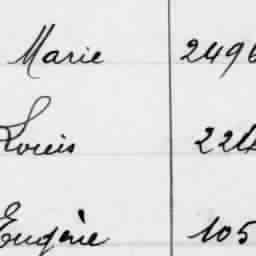 Marie 2496
Louis 224
Eugène 105